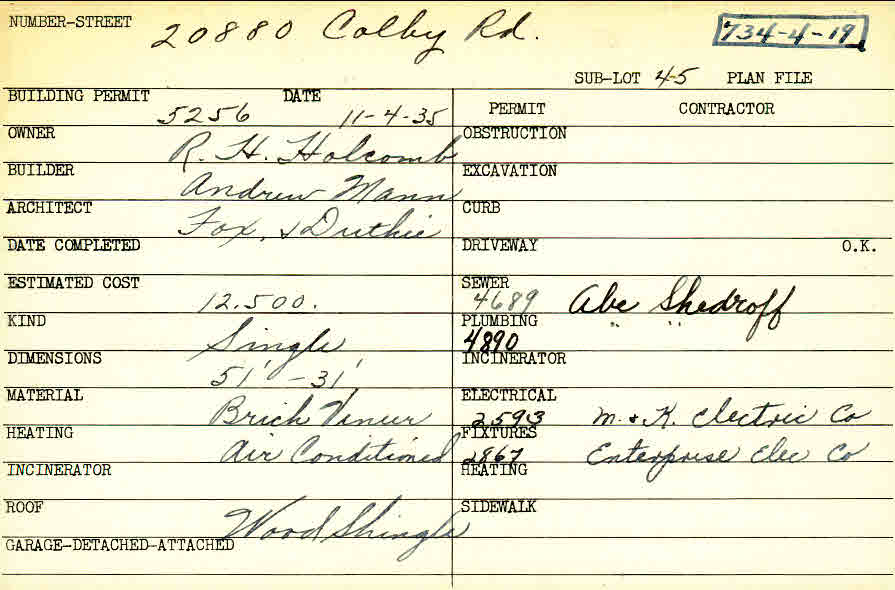 NUMBER-STREET 20880 Colby Rd. 734-4-19
SUB-LOT 45 PLAN FILE
BUILDING PERMIT 5256 DATE 11-4-35
PERMIT CONTRACTOR
OWNER R. H. Holcomb
OBSTRUCTION
BUILDER Andrew Mann
EXCAVATION
ARCHITECT Fox, & Duthie
CURB
DATE COMPLETED
DRIVEWAY O.K.
ESTIMATED COST 12.500.
SEWER 4689 Abe Shedroff
KIND Single
PLUMBING 4890 " "
DIMENSIONS 51' - 31'
INCINERATOR
MATERIAL Brick Vineer
ELECTRICAL 2593 M. & K. Electric Co
HEATING Air Conditioned
FIXTURES 2867 Enterprise Elec Co
INCINERATOR
HEATING
ROOF Wood Shingle
SIDEWALK
GARAGE-DETACHED-ATTACHED